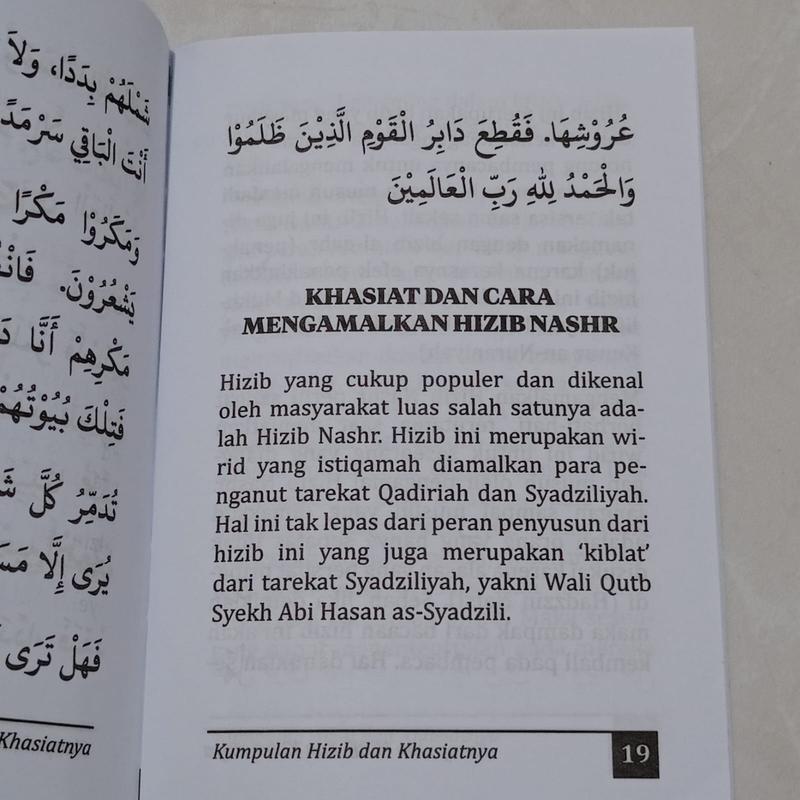 شَمْلَهُمْ بِدَدًا، وَلَا
أَنْتَ الْبَاقِي سَرْمَدًا
وَمَكَرُوْا مَكْرًا
يَشْعُرُوْنَ.
مَكْرِهِمْ أَنَّا
فَتِلْكَ بُيُوْتُهُمْ
تُدَمِّرُ كُلَّ
يُرَى إِلَّا
فَهَلْ تَرَى
Khasiatnya
عُرُوْشِهَا. فَقُطِعَ دَابِرُ الْقَوْمِ الَّذِيْنَ ظَلَمُوْا
وَالْحَمْدُ لِلهِ رَبِّ الْعَالَمِيْنَ
KHASIAT DAN CARA
MENGAMALKAN HIZIB NASHR
Hizib yang cukup populer dan dikenal
oleh masyarakat luas salah satunya ada-
lah Hizib Nashr. Hizib ini merupakan wi-
rid yang istiqamah diamalkan para pe-
nganut tarekat Qadiriah dan Syadziliyah.
Hal ini tak lepas dari peran penyusun dari
hizib ini yang juga merupakan ‘kiblat’
dari tarekat Syadziliyah, yakni Wali Qutb
Syekh Abi Hasan as-Syadzili.
Kumpulan Hizib dan Khasiatnya 19